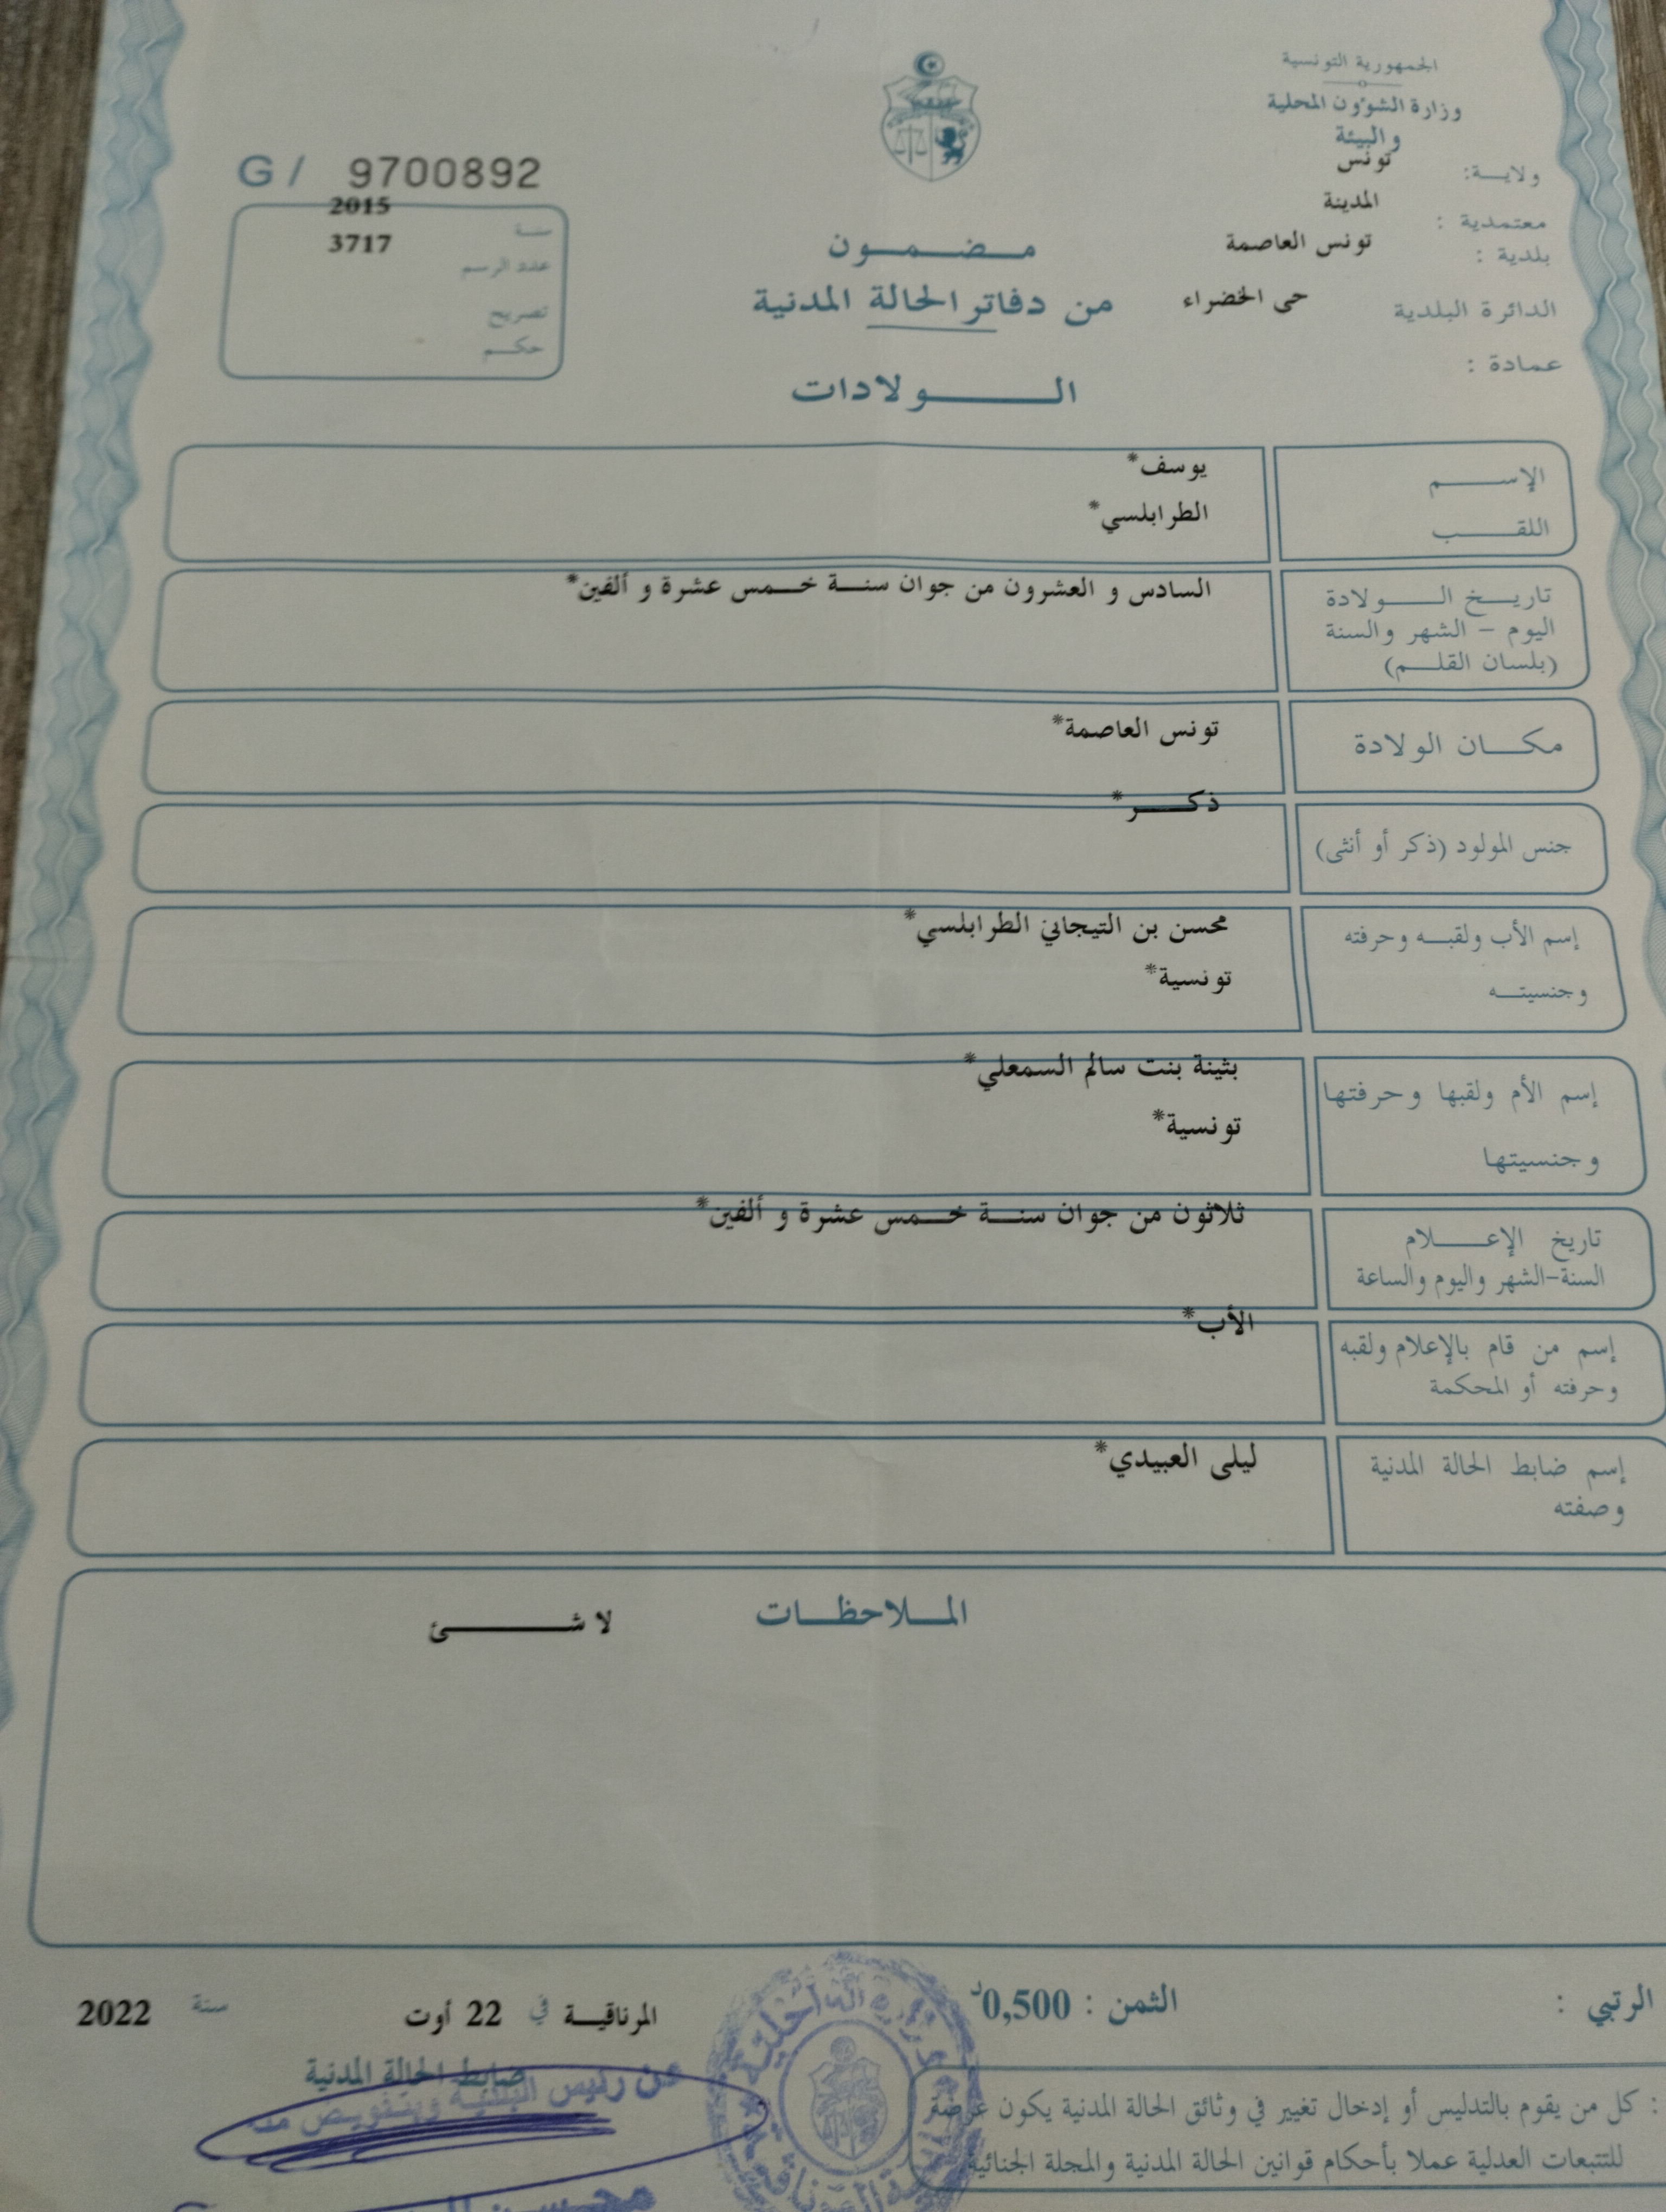 الجمهورية التونسية
وزارة الشؤون المحلية
والبيئة
ولاية: تونس
معتمدية : المدينة
بلدية : تونس العاصمة
الدائرة البلدية حى الخضراء
عمادة :
G / 9700892
سنة 2015
عدد الرسم 3717
تصريح
حكم
مضمون
من دفاتر الحالة المدنية
الولادات
الإسم يوسف*
اللقب الطرابلسي*
تاريخ الولادة السادس و العشرون من جوان سنة خمس عشرة و ألفين*
اليوم - الشهر والسنة
(بلسان القلم)
مكان الولادة تونس العاصمة*
جنس المولود (ذكر أو أنثى) ذكر*
إسم الأب ولقبه وحرفته محسن بن التيجاني الطرابلسي*
وجنسيته تونسية*
إسم الأم ولقبها وحرفتها بثينة بنت سالم السمعلي*
وجنسيتها تونسية*
تاريخ الإعلام ثلاثون من جوان سنة خمس عشرة و ألفين*
السنة-الشهر واليوم والساعة
إسم من قام بالإعلام ولقبه الأب*
وحرفته أو المحكمة
إسم ضابط الحالة المدنية ليلى العبيدي*
وصفته
الملاحظات لا شئ
الرتبي : الثمن : 0,500د
المرناقية في 22 أوت سنة 2022
ضابط الحالة المدنية
عن رئيس البلدية وبتفويض منه
: كل من يقوم بالتدليس أو إدخال تغيير في وثائق الحالة المدنية يكون عرضة
للتتبعات العدلية عملا بأحكام قوانين الحالة المدنية والمجلة الجنائية